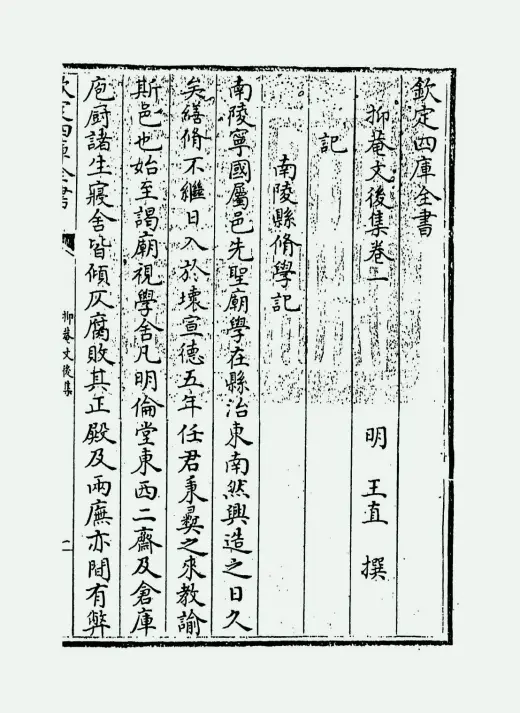 欽定四庫全書
抑菴文後集卷一
明 王直 撰
記
南陵縣脩學記
南陵寧國屬邑先聖廟學在縣治東南然興造之日久
矣繕脩不繼日入於壞宣德五年任君秉彛之來教諭
斯邑也始至謁廟視學舍凡明倫堂東西二齋及倉庫
庖厨諸生寢舍皆傾仄腐敗其正殿及兩廡亦間有弊
欽定四庫全書
抑菴文後集